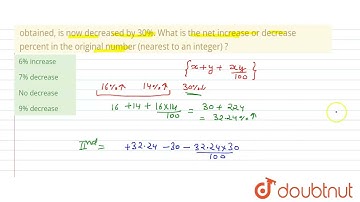 obtained, is now decreased by 30%. What is the net increase or decrease
percent in the original number (nearest to an integer) ?
6% increase
7% decrease
No decrease
9% decrease
{x+y+ xy/100}
16%↑ 14%↑ 30%↓
16 +14 + 16×14/100 = 30 + 2.24
= 32.24%↑
IInd = +32.24 -30 - 32.24×30/100
doubtnut